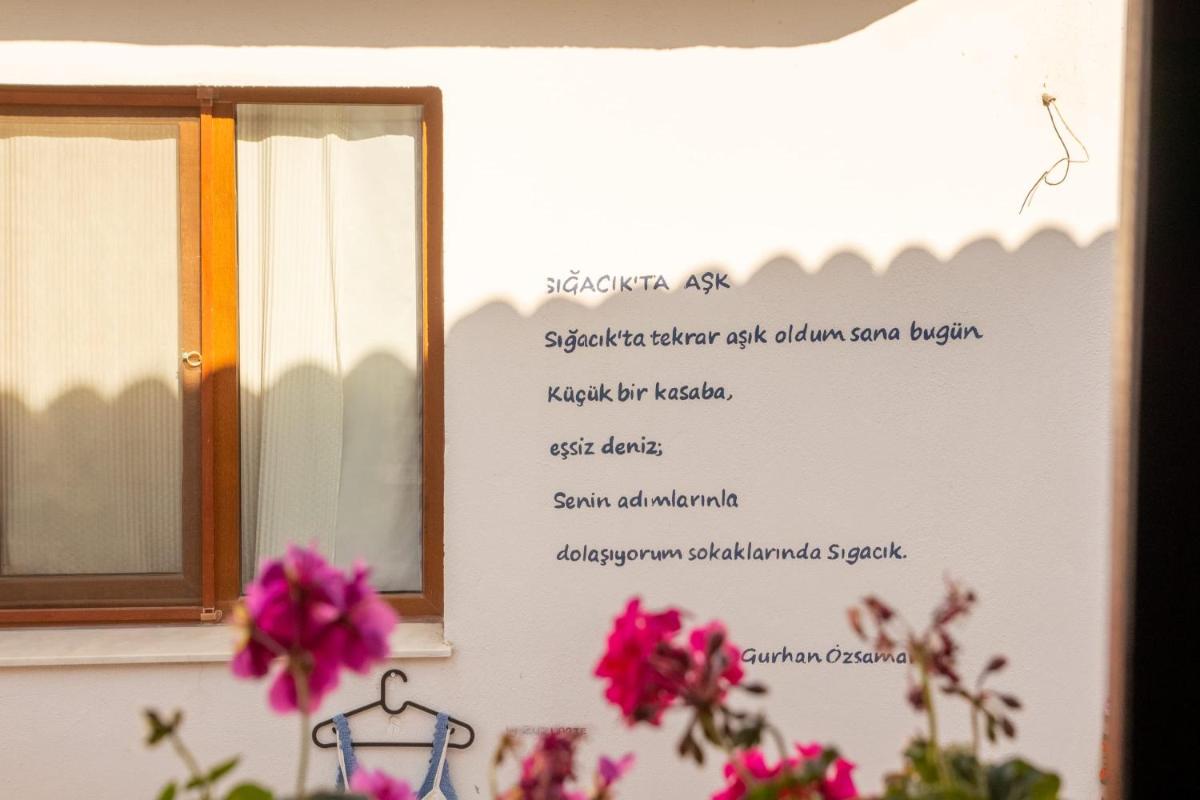 SIĞACIK'TA AŞK
Sığacık'ta tekrar aşık oldum sana bugün
Küçük bir kasaba,
eşsiz deniz;
Senin adımlarınla
dolaşıyorum sokaklarında Sıgacık.
Gurhan